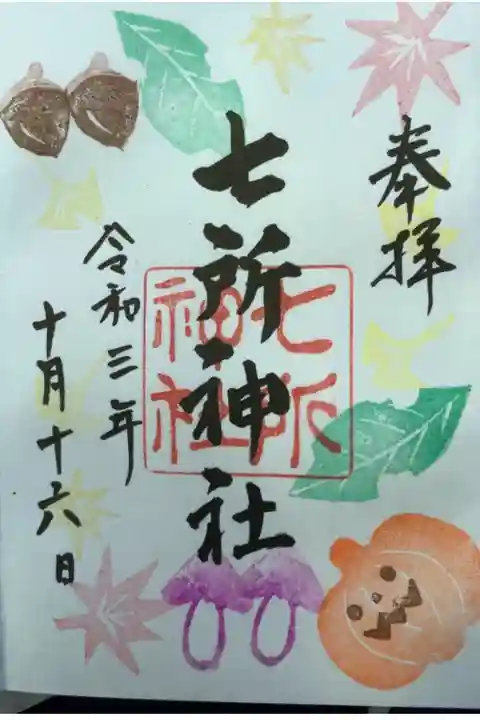 奉拝
七所神社
七所
神社
令和三年
十月十六日